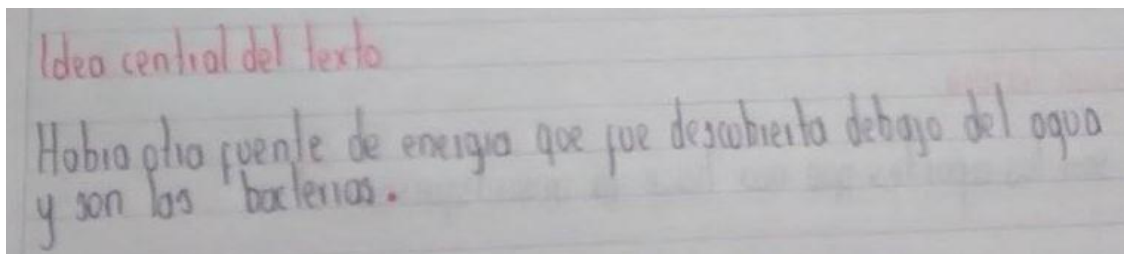 Idea central del texto
Habia otra fuente de energia que fue descubierta debajo del agua
y son las bacterias.